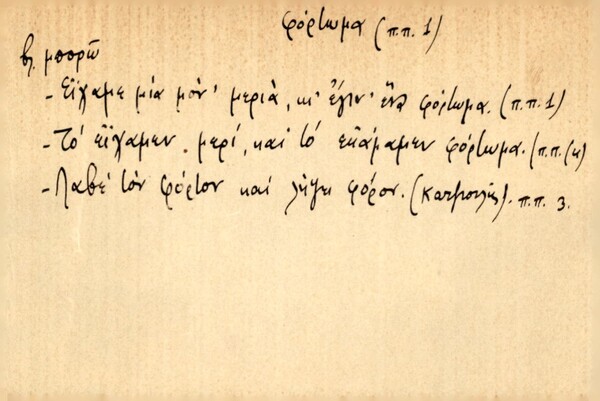 φόρτωμα (π.π. 1)
βλ. μπορῶ
- Εἴχαμε μία μον' μεριὰ, κι' ἔγιν' ἕνα φόρτωμα. (π.π. 1)
- Τό εἴχαμεν μερί, καί τό ἐκάμαμεν φόρτωμα. (π.π. (κ)
- Λαβέ τὸν φόρτον καί λήγει φόρον. π.π. 3.